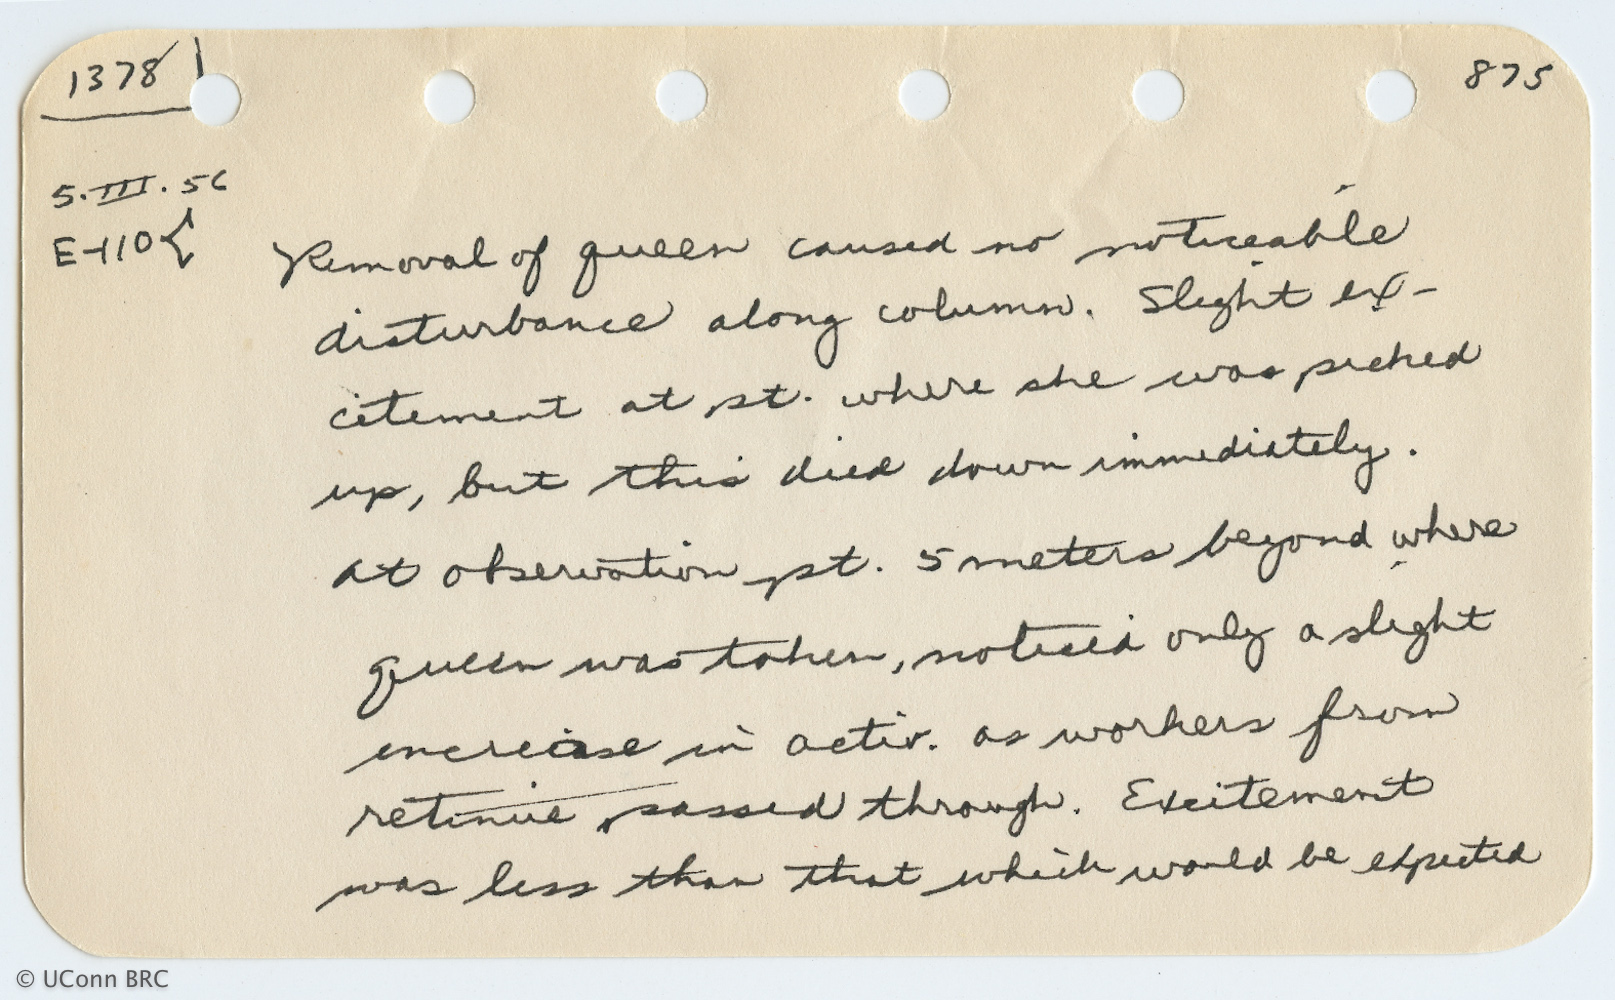 1378
875
5.III.56
E-110{
Removal of queen caused no noticeable
disturbance along column. Slight ex-
citement at pt. where she was picked
up, but this died down immediately.
At observation pt. 5 meters beyond where
queen was taken, noticed only a slight
increase in activ. as workers from
retinue passed through. Excitement
was less than that which would be expected
© UConn BRC